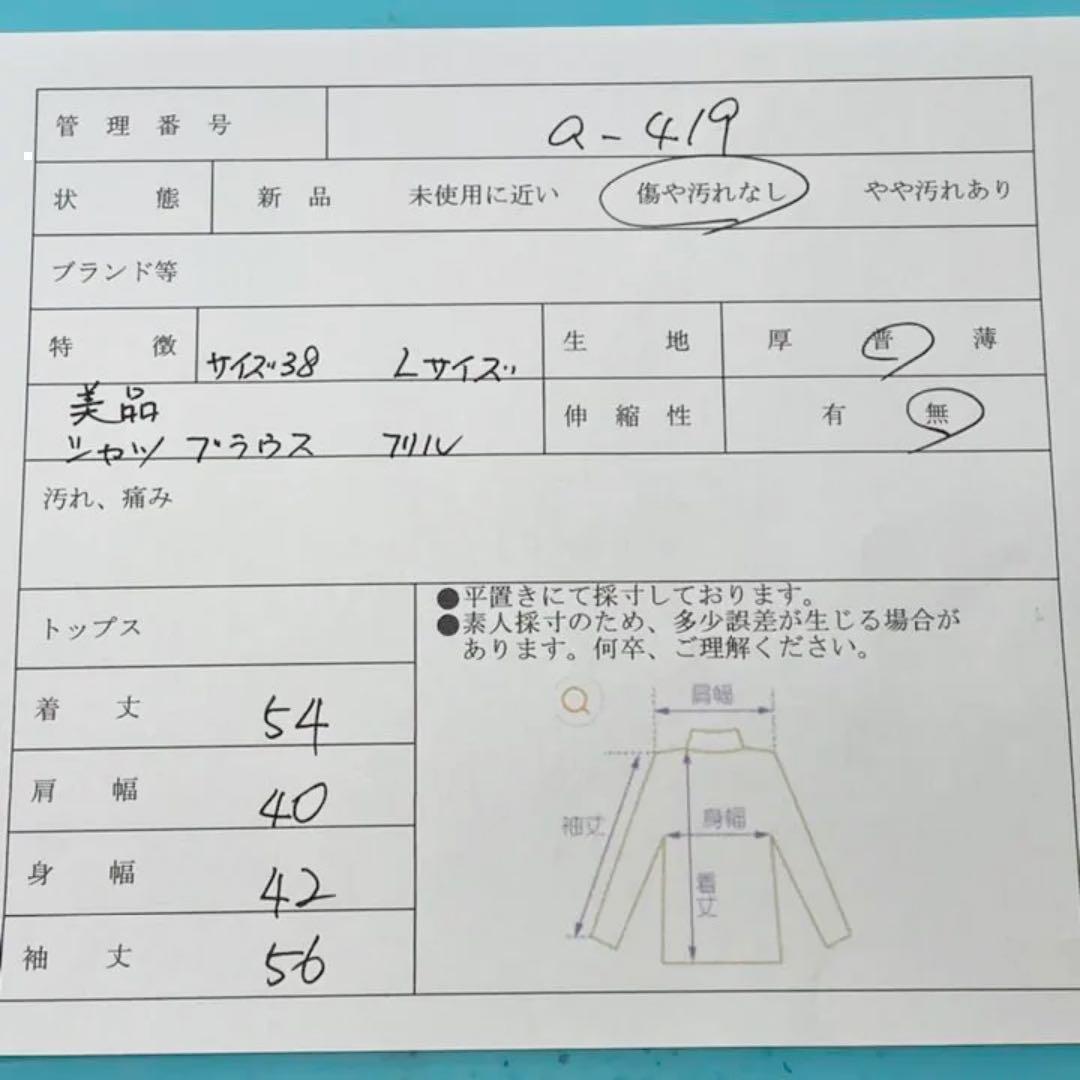 管理番号 a-419
状態 新品 未使用に近い 傷や汚れなし やや汚れあり
ブランド等
特徴 サイズ38 Lサイズ 生地 厚 普 薄
美品 伸縮性 有 無
シャツ ブラウス フリル
汚れ、痛み
トップス
●平置きにて採寸しております。
●素人採寸のため、多少誤差が生じる場合が
あります。何卒、ご理解ください。
着丈 54
肩幅 40
身幅 42
袖丈 56
肩幅
袖丈
身幅
着丈